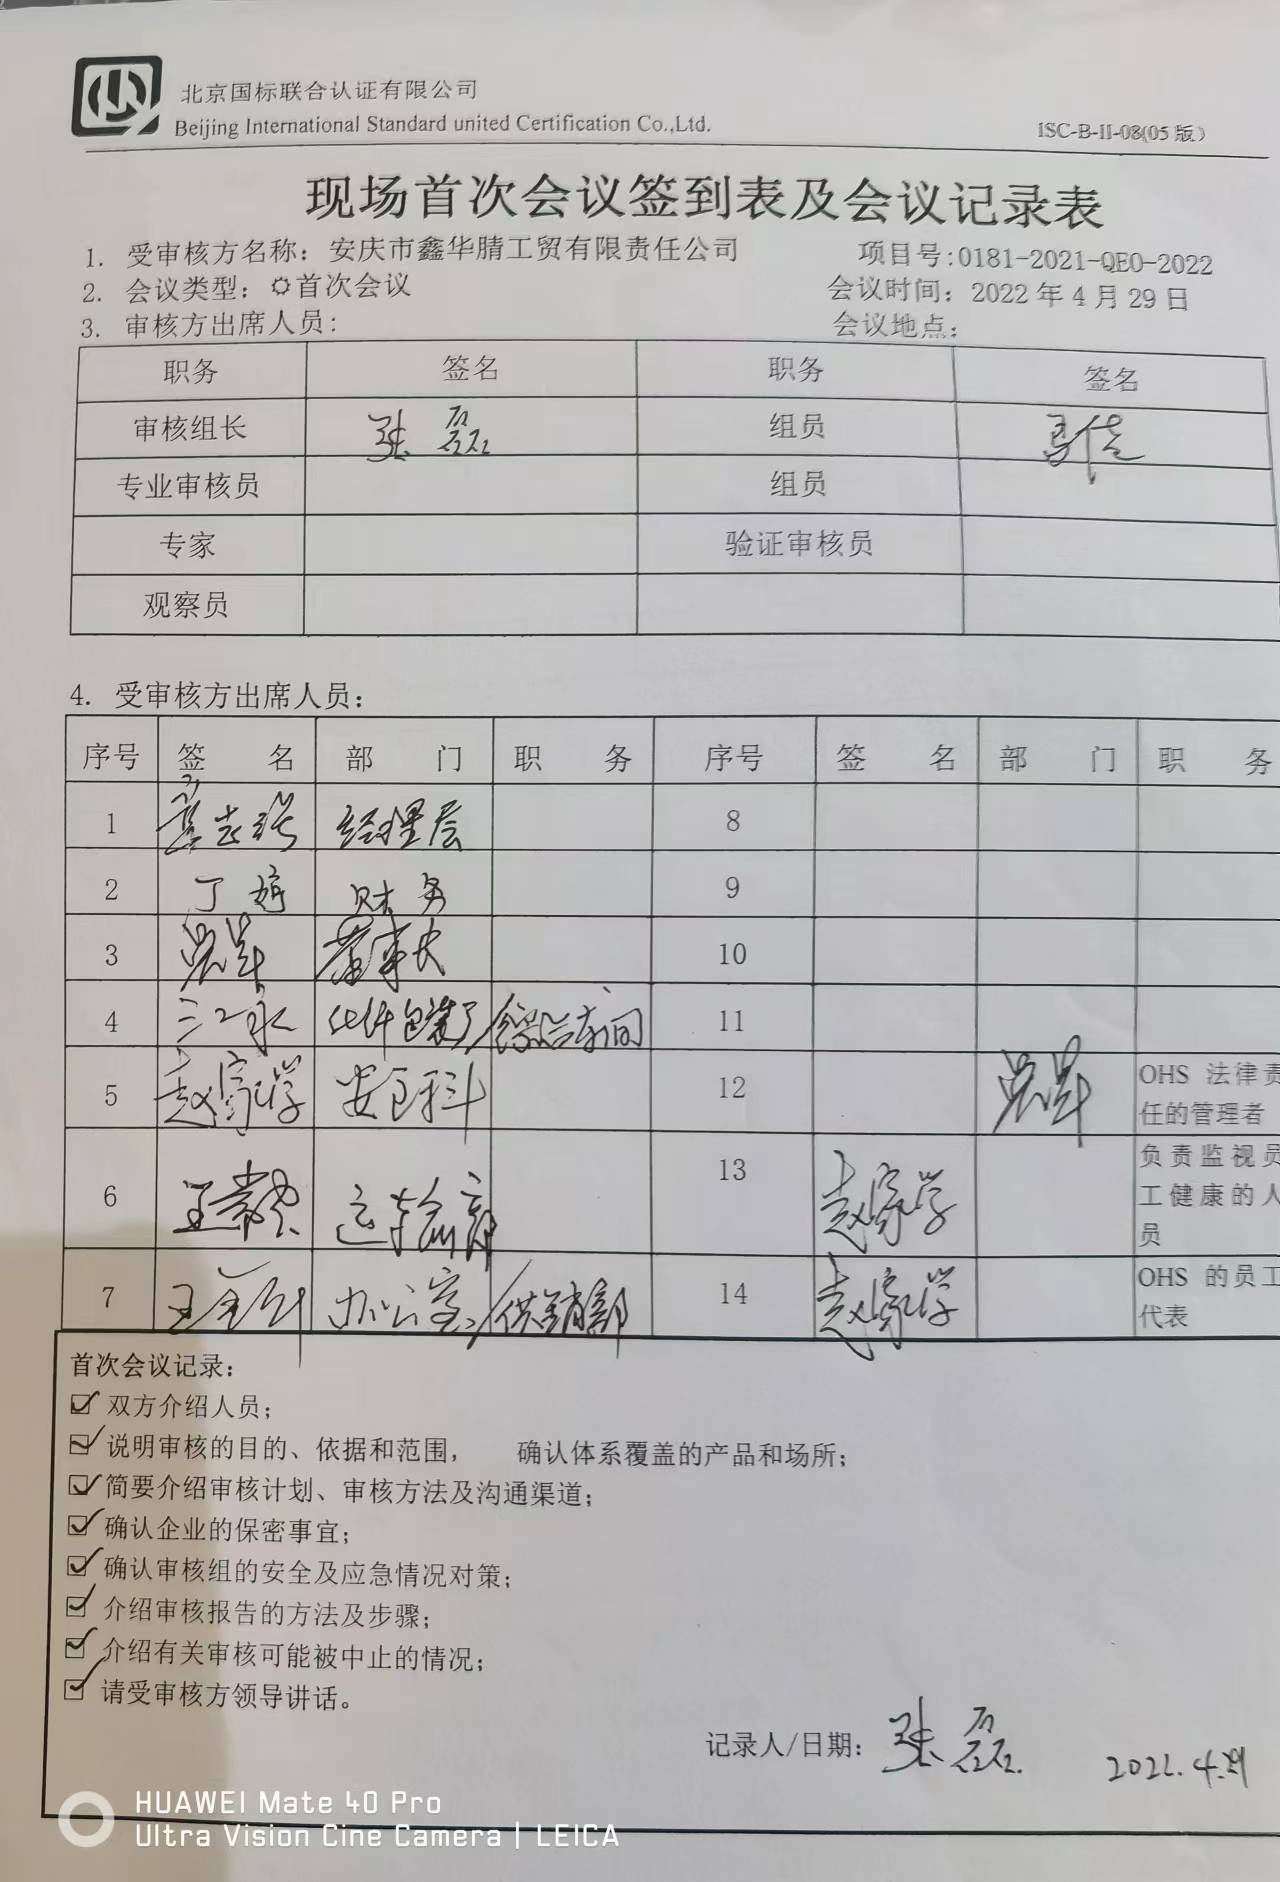 北京国标联合认证有限公司
Beijing International Standard united Certification Co.,Ltd.
ISC-B-II-08(05 版)
现场首次会议签到表及会议记录表
1. 受审核方名称：安庆市鑫华腈工贸有限责任公司 项目号:0181-2021-QEO-2022
2. 会议类型：首次会议 会议时间：2022 年 4 月 29 日
3. 审核方出席人员： 会议地点：
职务 签名 职务 签名
审核组长 张磊 组员 马佳
专业审核员 组员
专家 验证审核员
观察员
4. 受审核方出席人员：
序号 签 名 部 门 职 务 序号 签 名 部 门 职 务
1 经理层 8
2 丁婷 财务 9
3 董事长 10
4 江永 化纤包装厂/综合车间 11
5 赵家学 安卫科 12 OHS 法律责
任的管理者
6 王常 运输部 13 赵家学 负责监视员
工健康的人
员
7 办公室/供销部 14 赵家学 OHS 的员工
代表
首次会议记录：
双方介绍人员；
说明审核的目的、依据和范围， 确认体系覆盖的产品和场所；
简要介绍审核计划、审核方法及沟通渠道；
确认企业的保密事宜；
确认审核组的安全及应急情况对策；
介绍审核报告的方法及步骤；
介绍有关审核可能被中止的情况；
请受审核方领导讲话。
记录人/日期： 张磊. 2022.4.29
HUAWEI Mate 40 Pro
Ultra Vision Cine Camera | LEICA